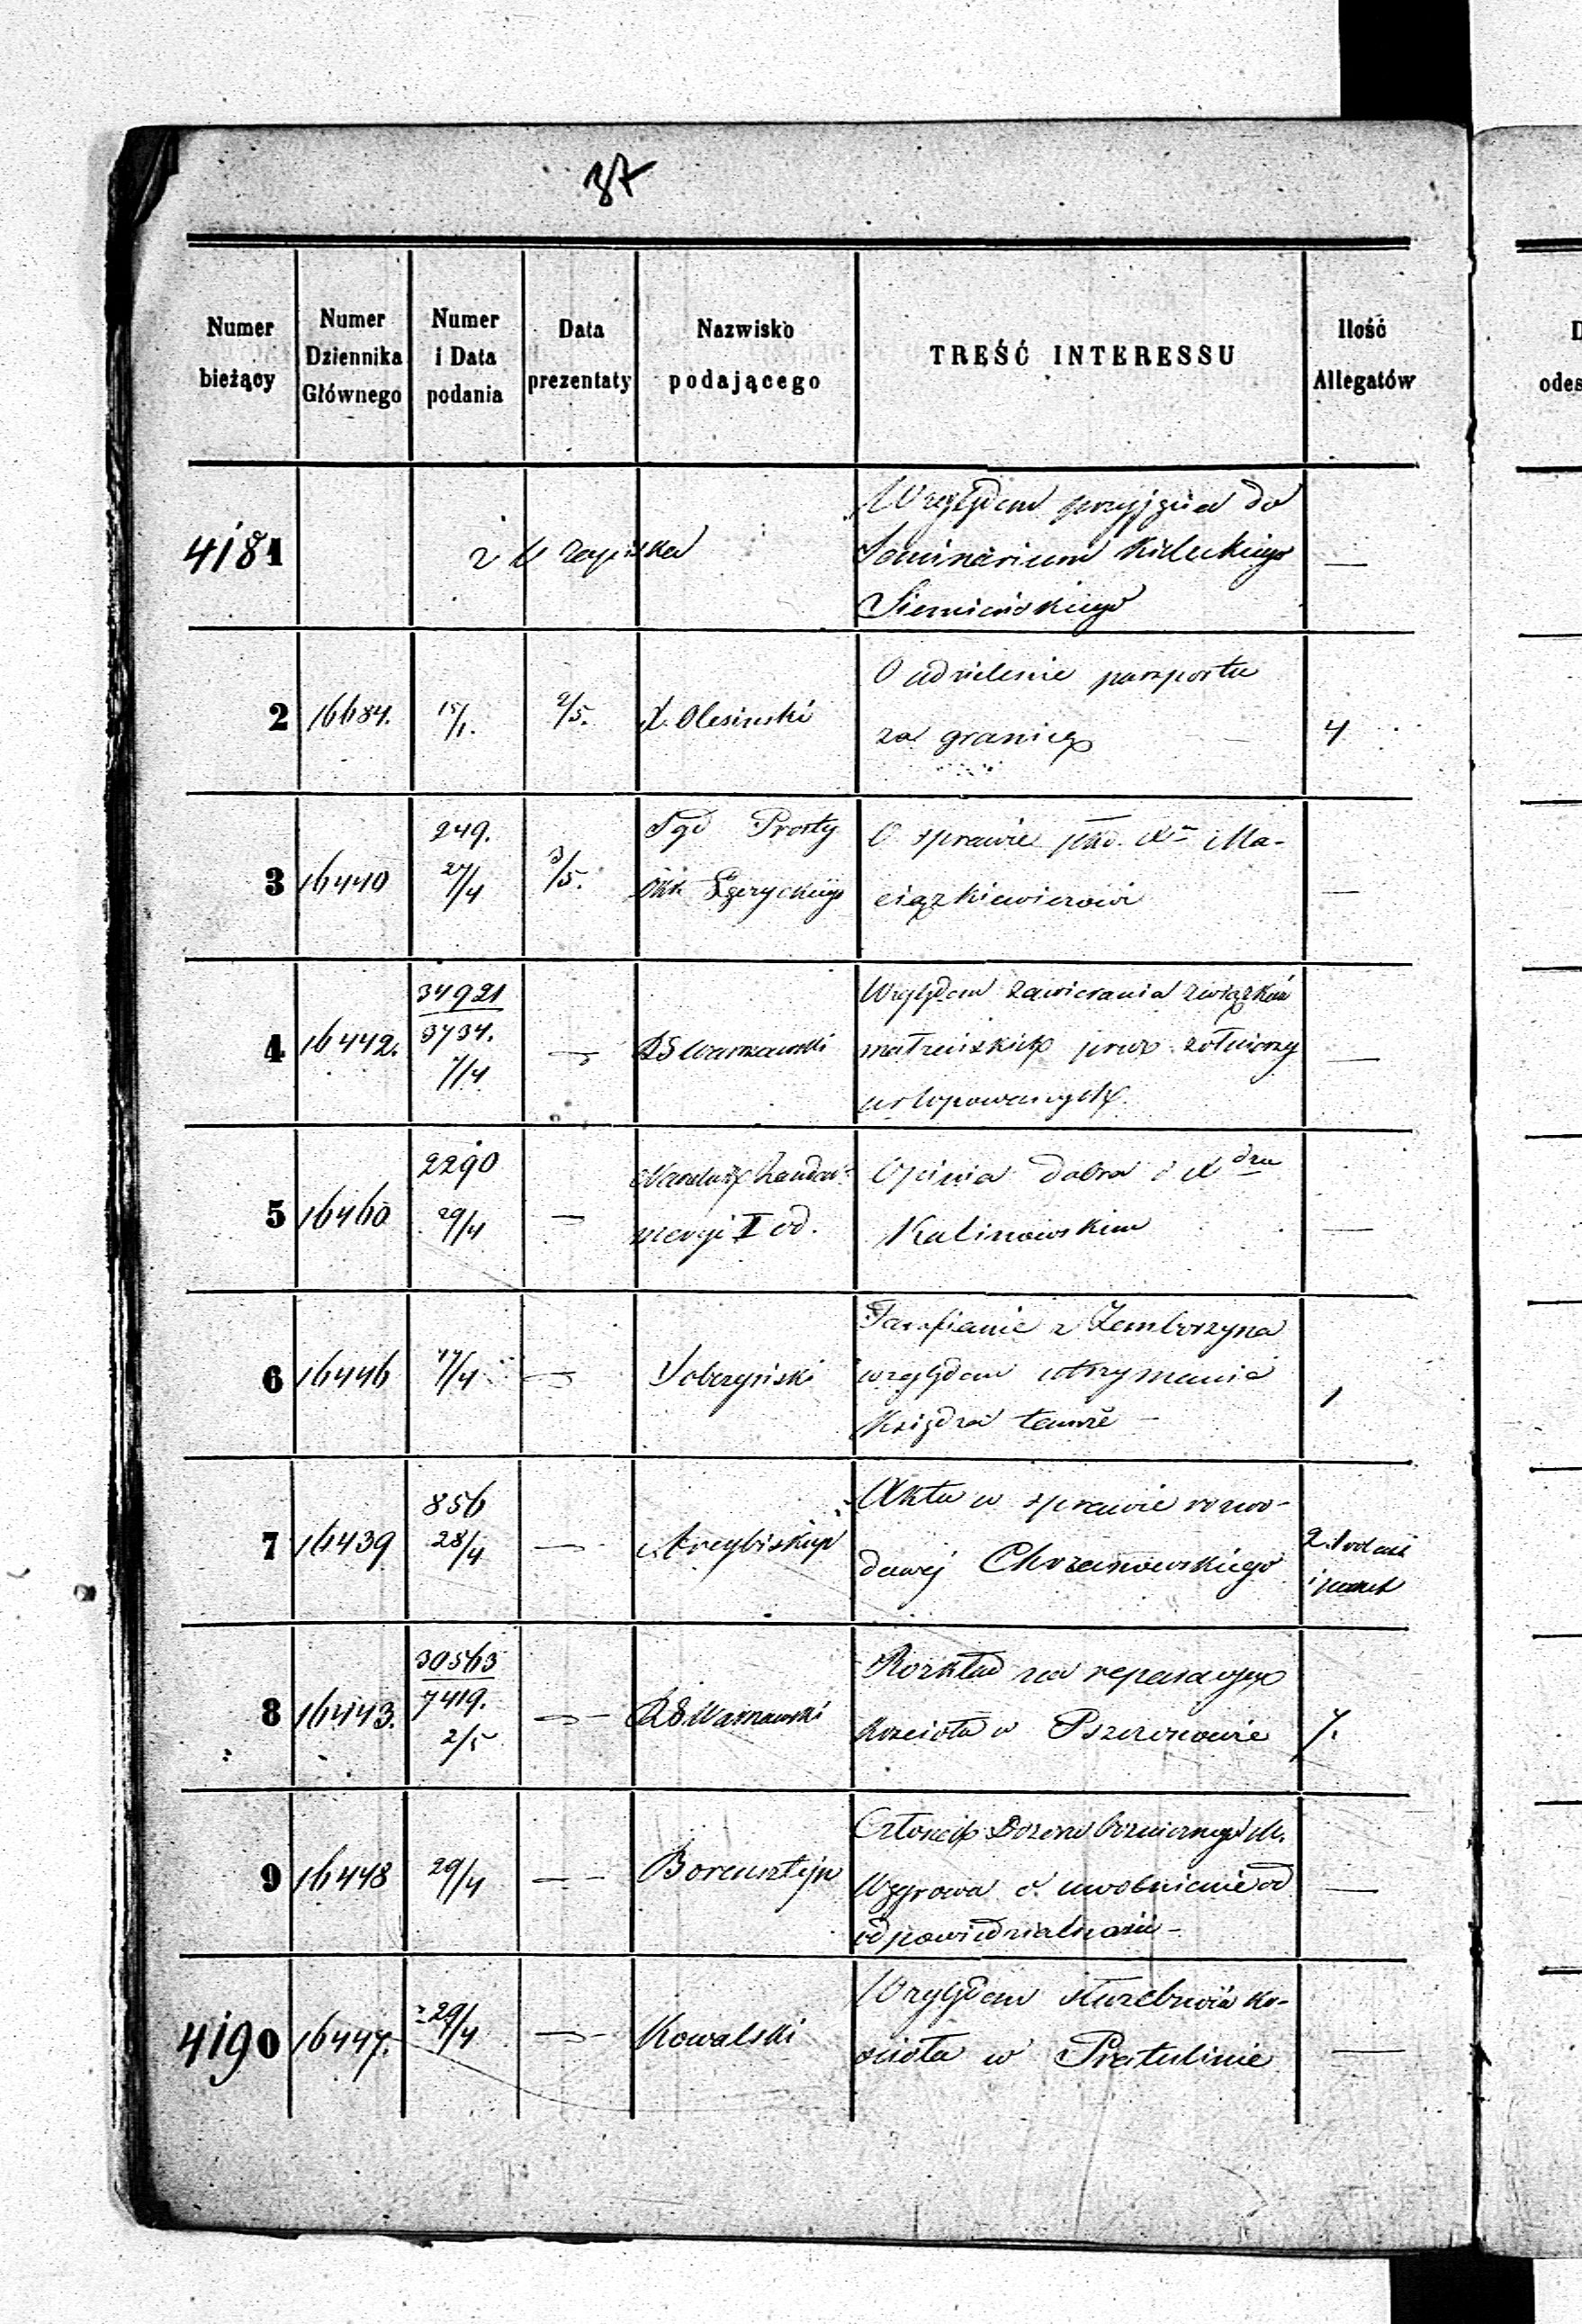 37
Numer bieżący | Numer Dziennika Głównego | Numer i Data podania | Data prezentaty | Nazwisko podającego | TREŚĆ INTERESSU | Ilość Allegatów
4181
Względem przyjęcia do
Seminarium Kieleckiego —
Siemieńskiego
2 | 16684. | 15/1. | 2/5. | X. Olesinski | O udzielenie paszportu
za granicę | 4
3 | 16440 | 249. 27/4 | 3/5. | Sąd Prosty
Okr Łęczyckiego | O sprawie Xa Ma-
ciązkiewiczowi | —
4 | 16442. | 34921 / 3734. 7/4 | — | RG Warszawski | Względem zawierania związków
małżeńskich przez żołnierzy
urlopowanych. | —
5 | 16460 | 2290 29/4 | — | Żandar-
meryi II od. | Opinia dobra o X dzu
Kalinowskim | —
6 | 16446 | 17/4 | — | Sobczyński | Parafianie z Zemborzyna
względem utrzymania
Księdza tamże — | 1
7 | 16439 | 856 28/4 | — | Arcybiskup | Akta w sprawie rozwo-
dowej Chrzanowskiego | 2.
8 | 16443. | 30563 / 7419. 2/5 | — | RG Warszawski | Rozkład na reparacyę
Kościoła w Pszczonowie | 7.
9 | 16448 | 29/4 | — | Borensztejn | Członek Dozoru Bożniczego M.
Węgrowa o uwolnienie od
odpowiedzialności — | —
4190 | 16447. | 29/4 | — | Kowalski | Względem służebności Ko-
ścioła w Pratulinie | —
D
odes